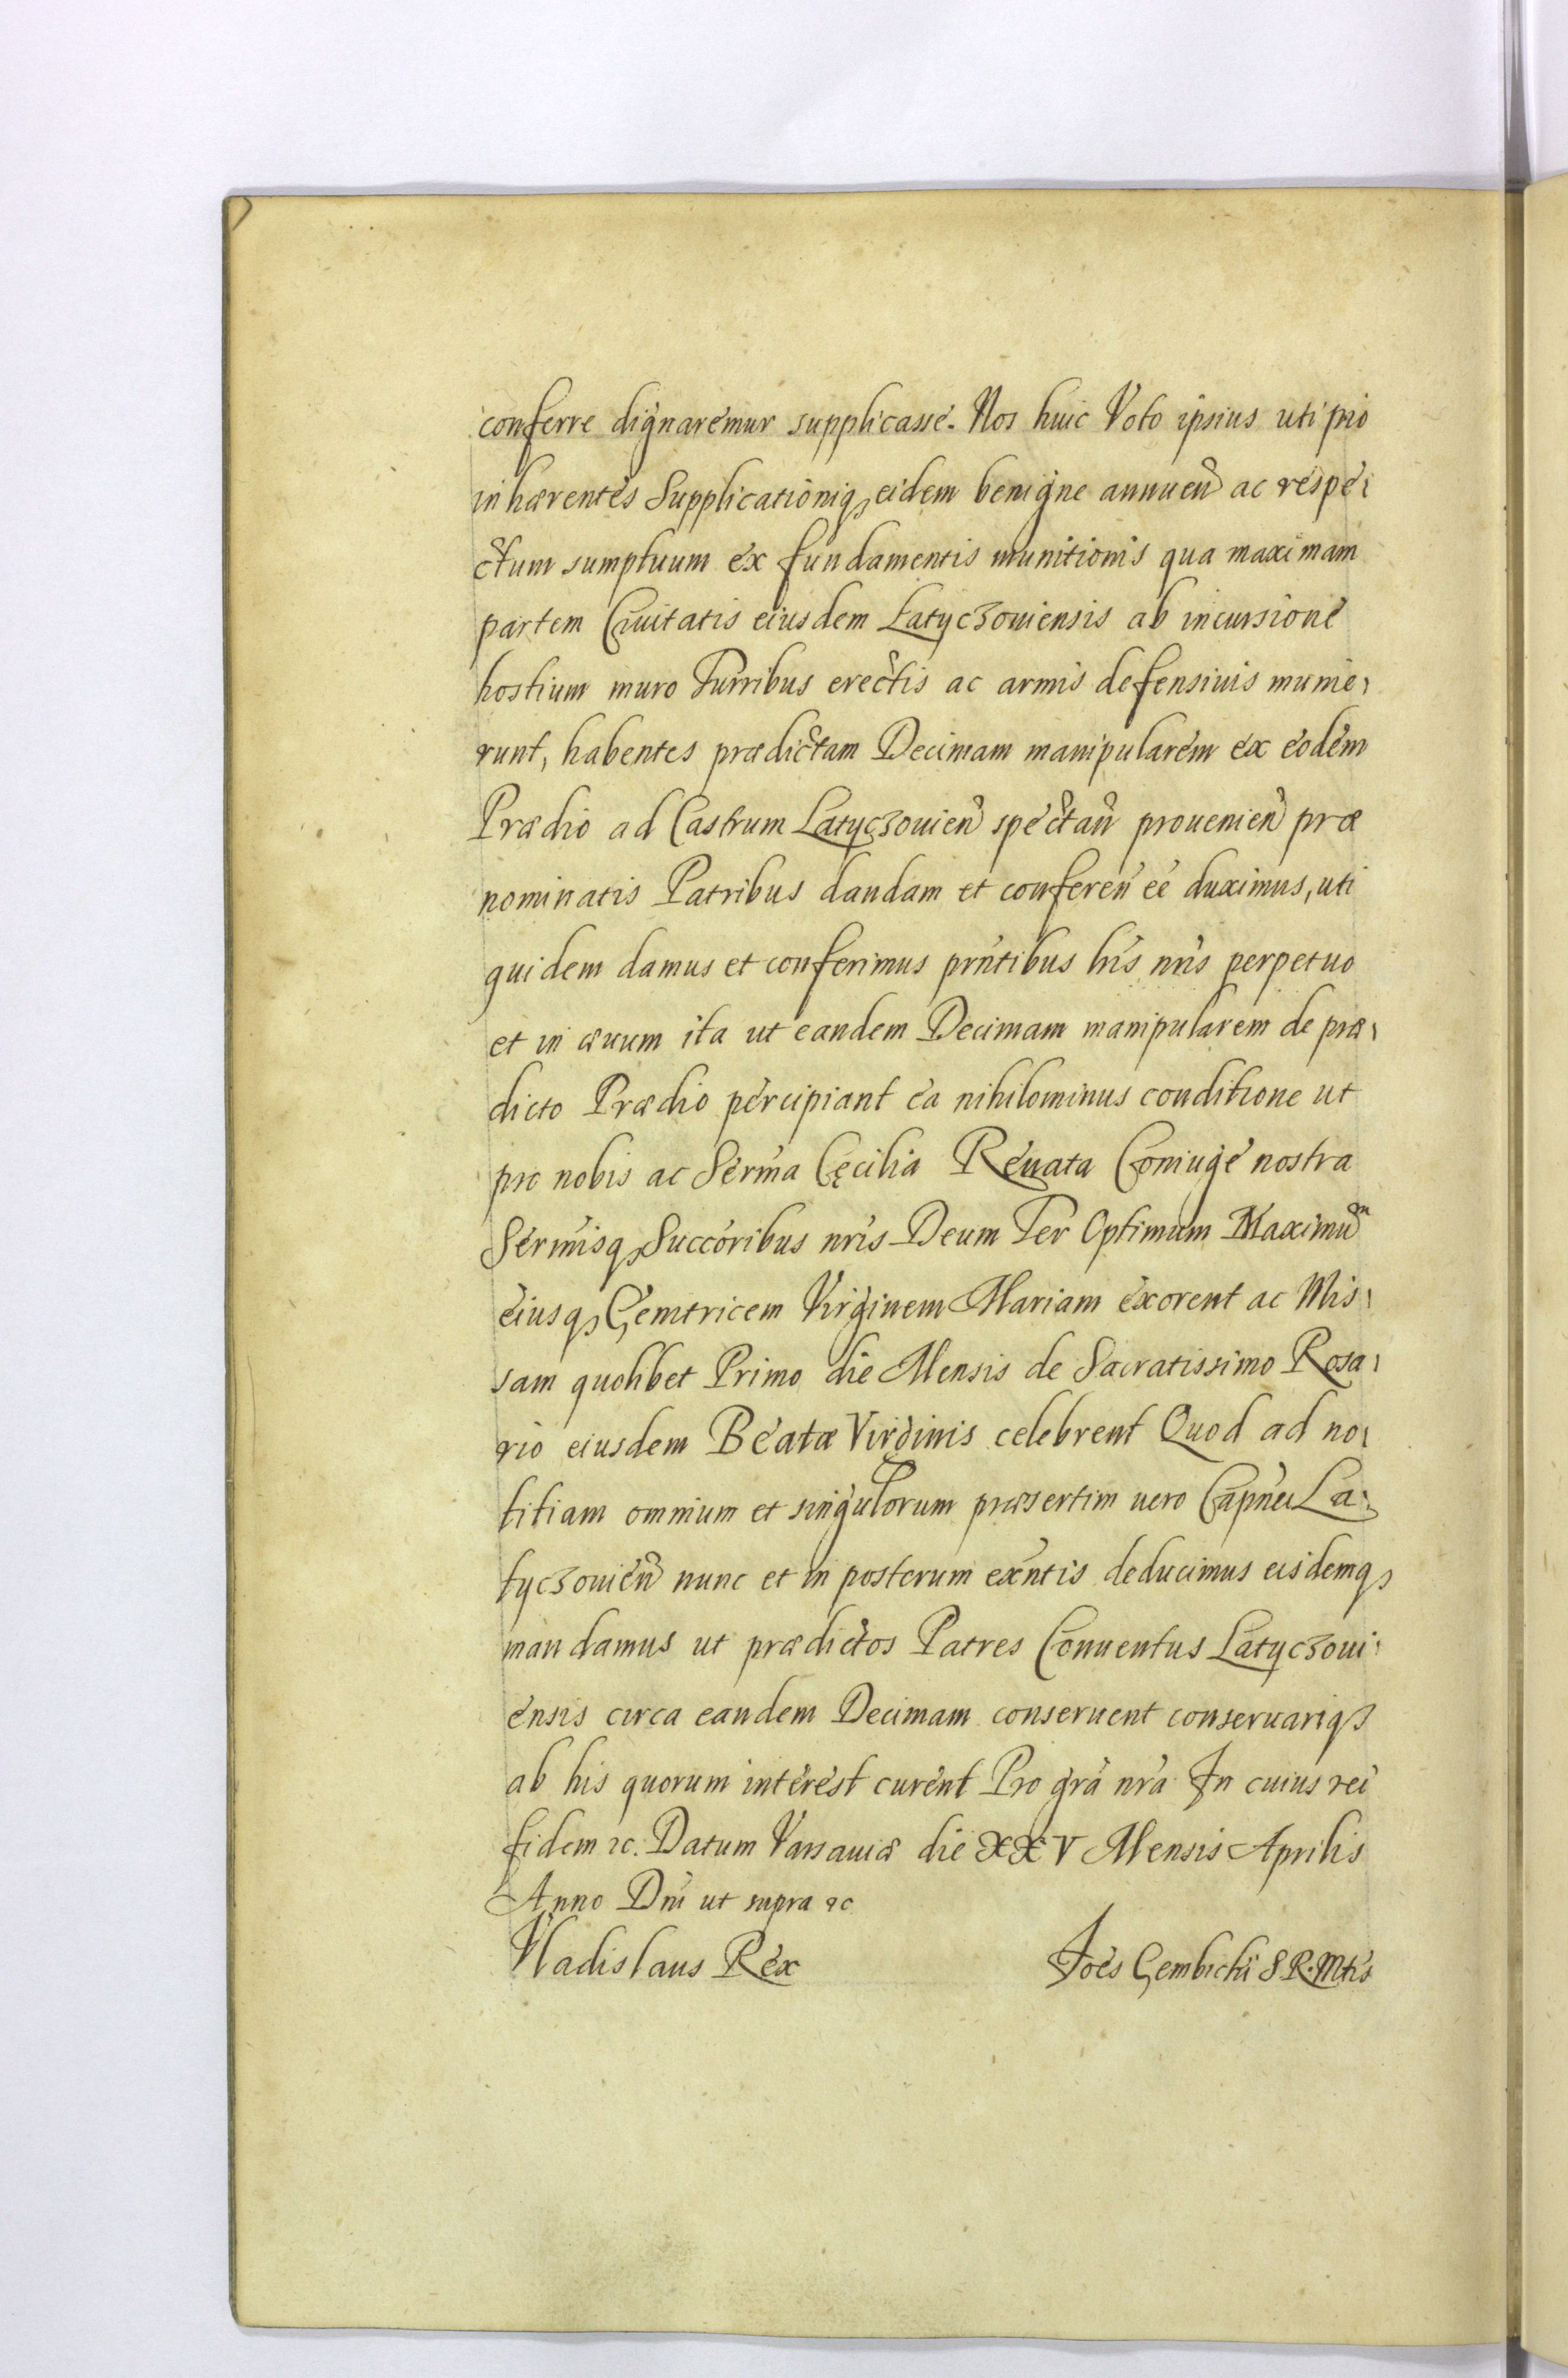 conferre dignaremur supplicasse. Nos huic Voto ipsius uti pio
inhærentes Supplicationiqꝫ eidem benigne annuen̄ ac respe-
ctum sumptuum ex fundamentis munitionis qua maximam
partem Ciuitatis eiusdem Łatyczouiensis ab incursione
hostium muro Turribus erectis ac armis defensiuis munie-
runt, habentes prædictam Decimam manipularem ex eodem
Prædio ad Castrum Latyczouien̄ spectan̄ prouenien̄ præ
nominatis Patribus dandam et conferen̄ eē duximus, uti
quidem damus et conferimus prn̄tibus his nr̄is perpetuo
et in æuum ita ut eandem Decimam manipularem de præ-
dicto Prædio percipiant ea nihilominus conditione ut
pro nobis ac Serm̄a Cęcilia Renata Coniuge nostra
Serm̄isqꝫ Succōribus nr̄is Deum Ter Optimum Maximūm
eiusqꝫ Genitricem Virginem Mariam exorent ac Mis-
sam quolibet Primo die Mensis de Sacratissimo Rosa-
rio eiusdem Beatæ Virginis celebrent Quod ad no-
titiam omnium et singulorum præsertim uero Capn̄ei La-
tyczouien̄ nunc et in posterum exn̄tis deducimus eisdemqꝫ
mandamus ut prædictos Patres Conuentus Latyczoui-
ensis circa eandem Decimam conseruent conseruariqꝫ
ab his quorum interest curent Pro gr̄a nr̄a In cuius rei
fidem ꝛc. Datum Varsauiæ die XXV Mensis Aprilis
Anno Dn̄i ut supra ꝛc
Vladislaus Rex Joēs Gembicki S R. Mtis